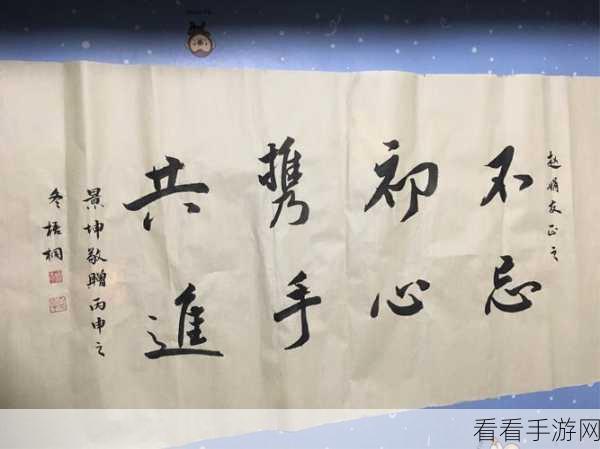 赵娟友正之
不忘
初心
携手
共進
景坤敬贈丙申之
冬梧桐
看看手游网